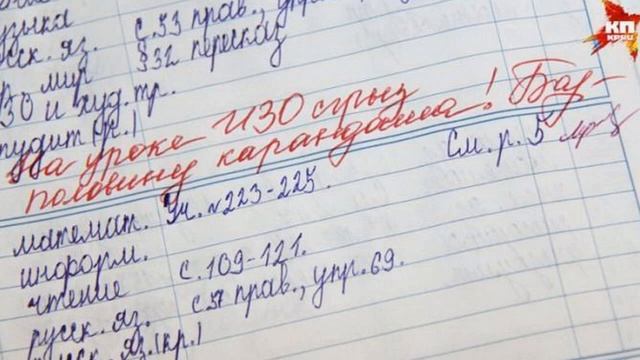 узыка
усск. яз. с.53 прав., упр
мир §32 пересказ
ИЗО и худ. тр.
На уроке ИЗО сгрыз
половину карандаша! Бар-
См. р. 5
математ. Уч. №223-225.
информ.
чтение с.109-121.
русск. яз. с 57 прав., упр. 69.
усск. яз. (кр.)
КП